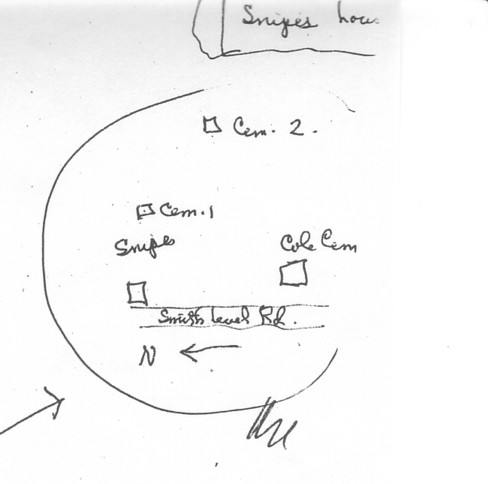 Snipes hou
Cem. 2.
Cem. 1
Snipes
Cole Cem
Smith Level Rd.
N